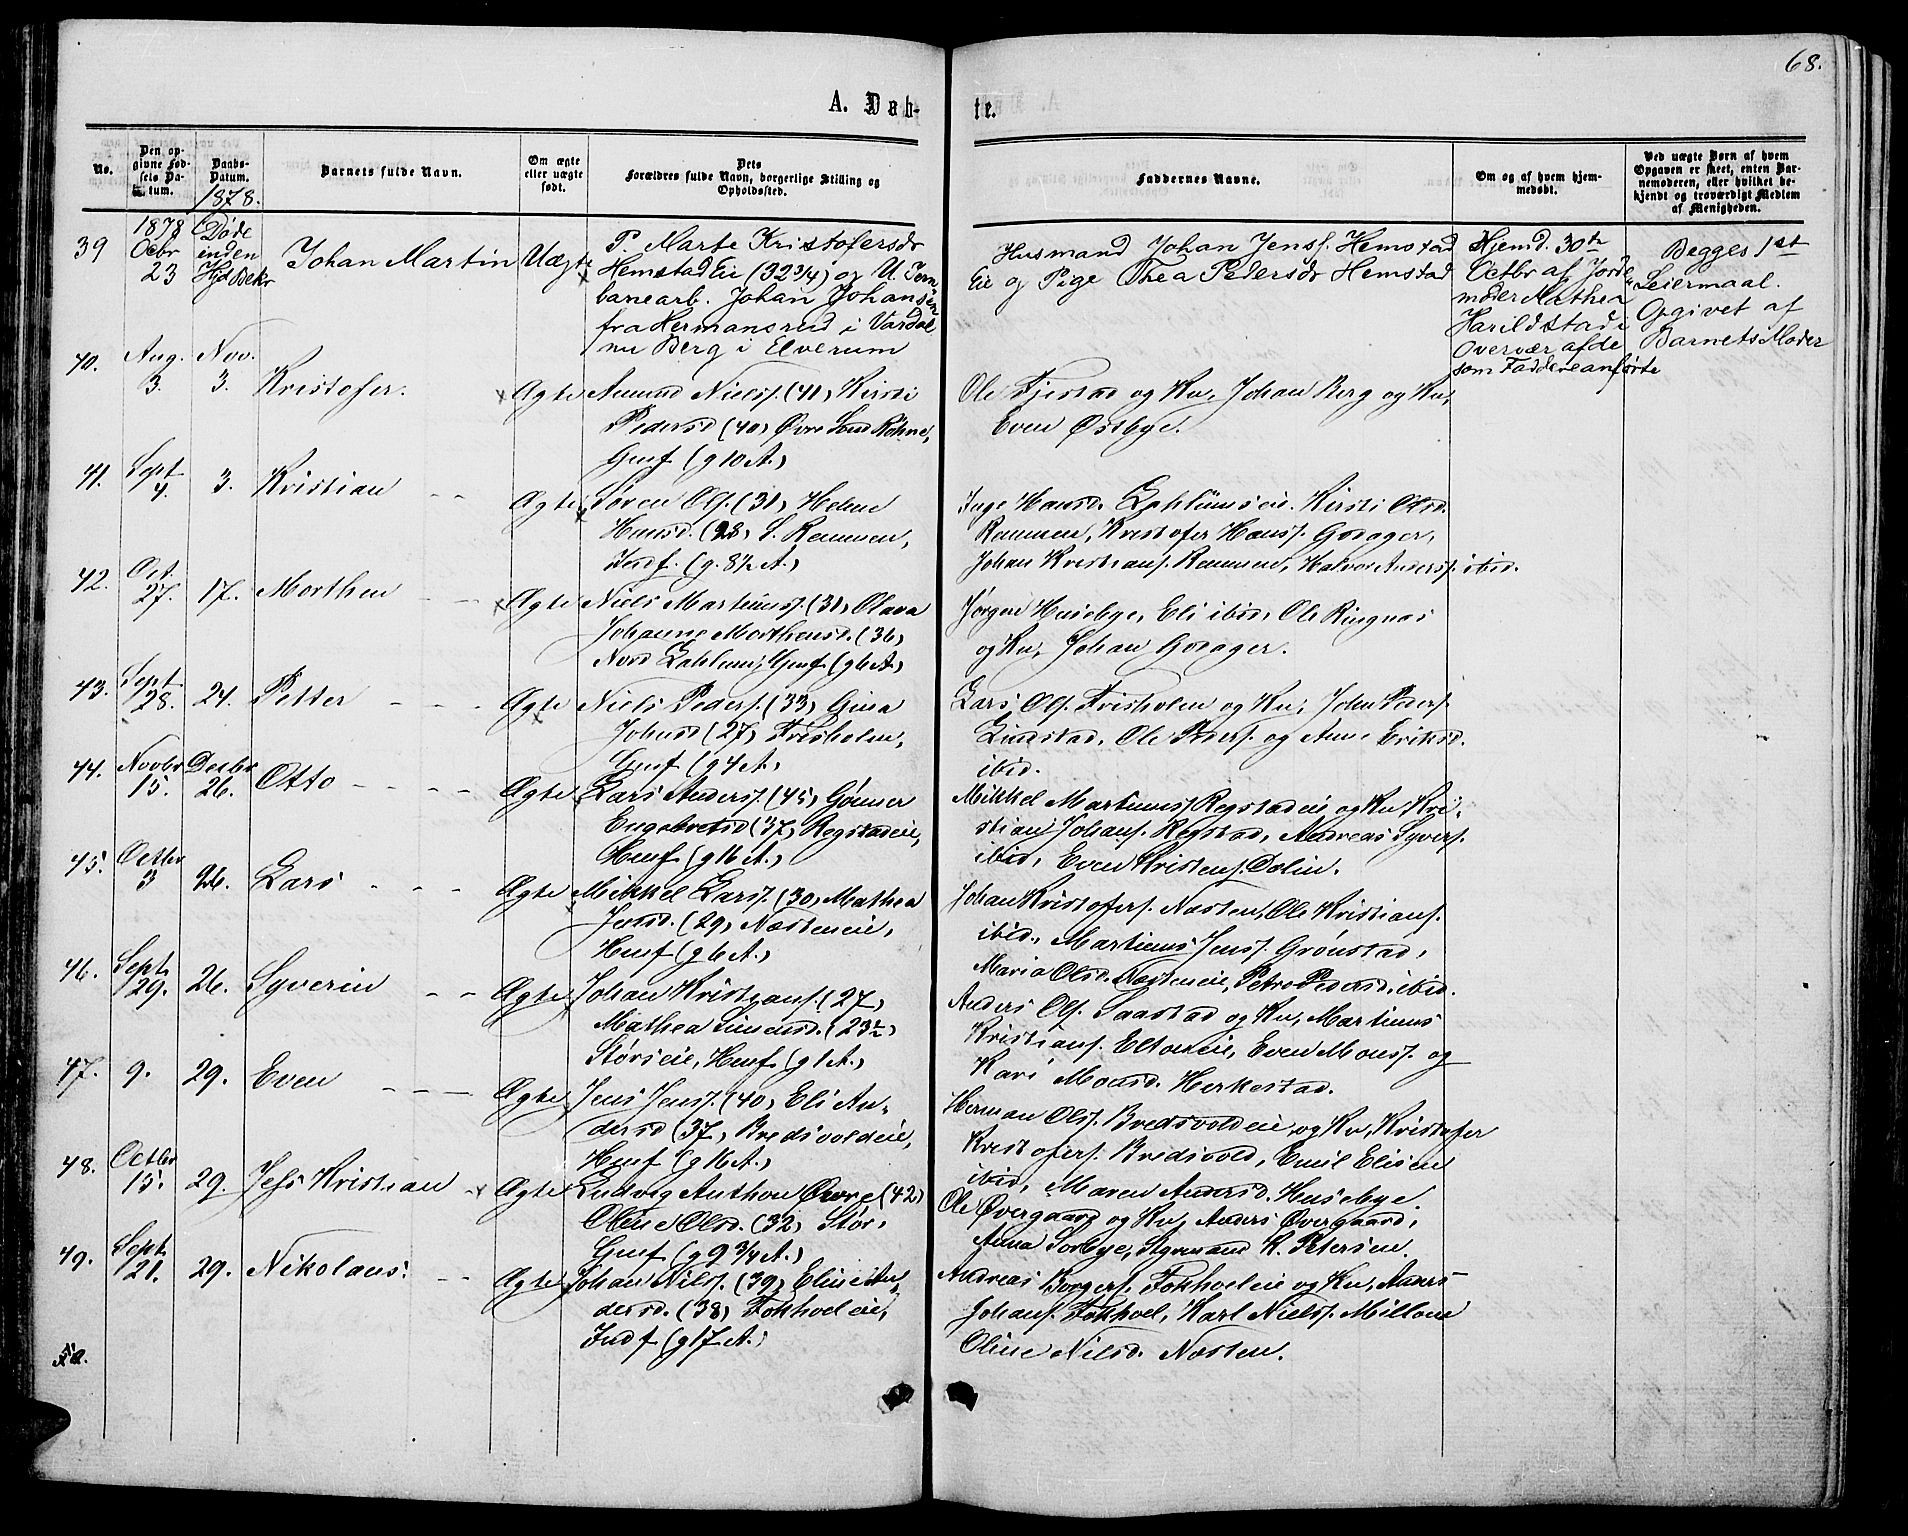 68.
A. Døb-
te.
No.
Den op-
givne Fød-
sels Da-
tum.
Daabs-
Datum.
1878.
Barnets fulde Navn.
Om ægte
eller uægte
født.
Dets
Forældres fulde Navn, borgerlige Stilling og
Opholdssted.
Faddernes Navne.
Om og af hvem hjem-
medøbt.
Ved uægte Børn af hvem
Opgaven er skeet, enten Bar-
nemoderen, eller hvilket be-
kjendt og troværdigt Medlem
af Menigheden.
39
1878
Octbr
23
Døde
inden
Johan Martin
Uægte
P. Marte Kristofersdr
Hemstad Eie (32 3/4) og U. Jern
banearb. Johan Johansen
fra Hermansrud i Vardal
nu Berg i Elverum
Husmand Johan Jensf. Hemstad
Eie og Pige Thea Pedersdr Hemstad
Hjemd. 30te
Octbr af Jorde
moder Mathea
Harildstad i
Overvær af de
som Faddere anførte
Begges 1st
Leiermaal.
Opgivet af
Barnets Moder
40.
Aug.
3.
Nov.
3.
Kristofer.
Ægte
Amund Nielsf. (41) Kirsti
Pedersd (40) Øvre Sond Røhne,
Genf (g 10 A.)
Ole Fjestad og Ku, Johan Berg og Ku,
Even Østbye.
41.
Sept
4.
3.
Kristian
Ægte
Soren Olf. (31) Helene
Hansd. (28) S. Remmen,
Indf. (g. 8½ A.)
Inge Hansd. Ekhlumseie. Kirsti Olsd.
Remmen, Kristofer Hansf. Godager,
Johan Kristiansf. Remmen, Halvor Andersf. ibid.
42.
Oct.
27.
17.
Morthen
Ægte
Niels Martinusf. (31) Olava
Johanne Morthensd. (36)
Nord Ekhlum, Genf (g 6 A.)
Jørgen Husebye, Eli ibid, Ole Ringnæs
og Ku, Johan Godager.
43.
Sept
28.
24.
Petter
Ægte
Niels Pedersf. (33) Gina
Johnsd (27) Frisholen,
Genf (g 4 A.)
Lars Olf. Frisholen og Ku, John Pedersf.
Lindstad, Ole Pedersf. og Anne Eriksd.
ibid.
44.
Novbr
15.
Decbr
26.
Otto
Ægte
Lars Andersf. (45) Gønner
Engebretsd (37) Regstadeie,
Henf (g 16 A.)
Mikkel Martinusf Regstadeie og Ku Kri-
stian Johansf. Regstad, Andreas Syversf.
ibid, Even Kristensf. Dolin.
45.
Octbr
3
26.
Lars
Ægte
Mikkel Larsf. (30) Mathea
Jensd. (29) Næsteneie,
Henf (g 6 A.)
Johan Kristofersf. Næsten, Ole Kristiansf.
ibid., Martinus Jensf. Grønstad,
Maria Olsd. Næsteneie, Petra Pedersd. ibid.
46.
Sept.
29.
26.
Syverin
Ægte
Johan Kristiansf. (27)
Mathea Simensd. (23½)
Størseie, Henf (g 1 A.)
Anders Olf. Saastad og Ku, Martinus
Kristiansf. Eltoneie, Even Monsf. og
Kari Monsd. Herkestad.
47.
9.
29.
Even
Ægte
Jens Jensf. (40) Eli An-
dersd (37) Bredsvoldeie,
Henf (g 16 A.)
Herman Olsf. Bredsvoldeie og Ku, Kristofer
Kristofersf. Bredsvold, Emil Elisen
ibid, Maren Andersd. Husebye.
48.
Octbr
15.
29.
Jess Kristian
Ægte
Ludvig Anthon Øvre (42)
Oline Olsd. (32) Stor,
Genf (g 9 3/4 A.)
Ole Øvergaard og Ku, Anders Øvergaard,
Anna Sorbye, Styrmand K. Petersen.
49.
Sept.
21.
29.
Nikolaus.
Ægte
Johan Nilsf. (39) Eline An-
dersd. (38) Fokhoeleie,
Indf (g 17 A.)
Andreas Borgersf. Fokhoeleie og Ku, Anders
Johansf. Fokhoel, Karl Nielsf. Millom
Oline Nilsd. Næsten.
50.